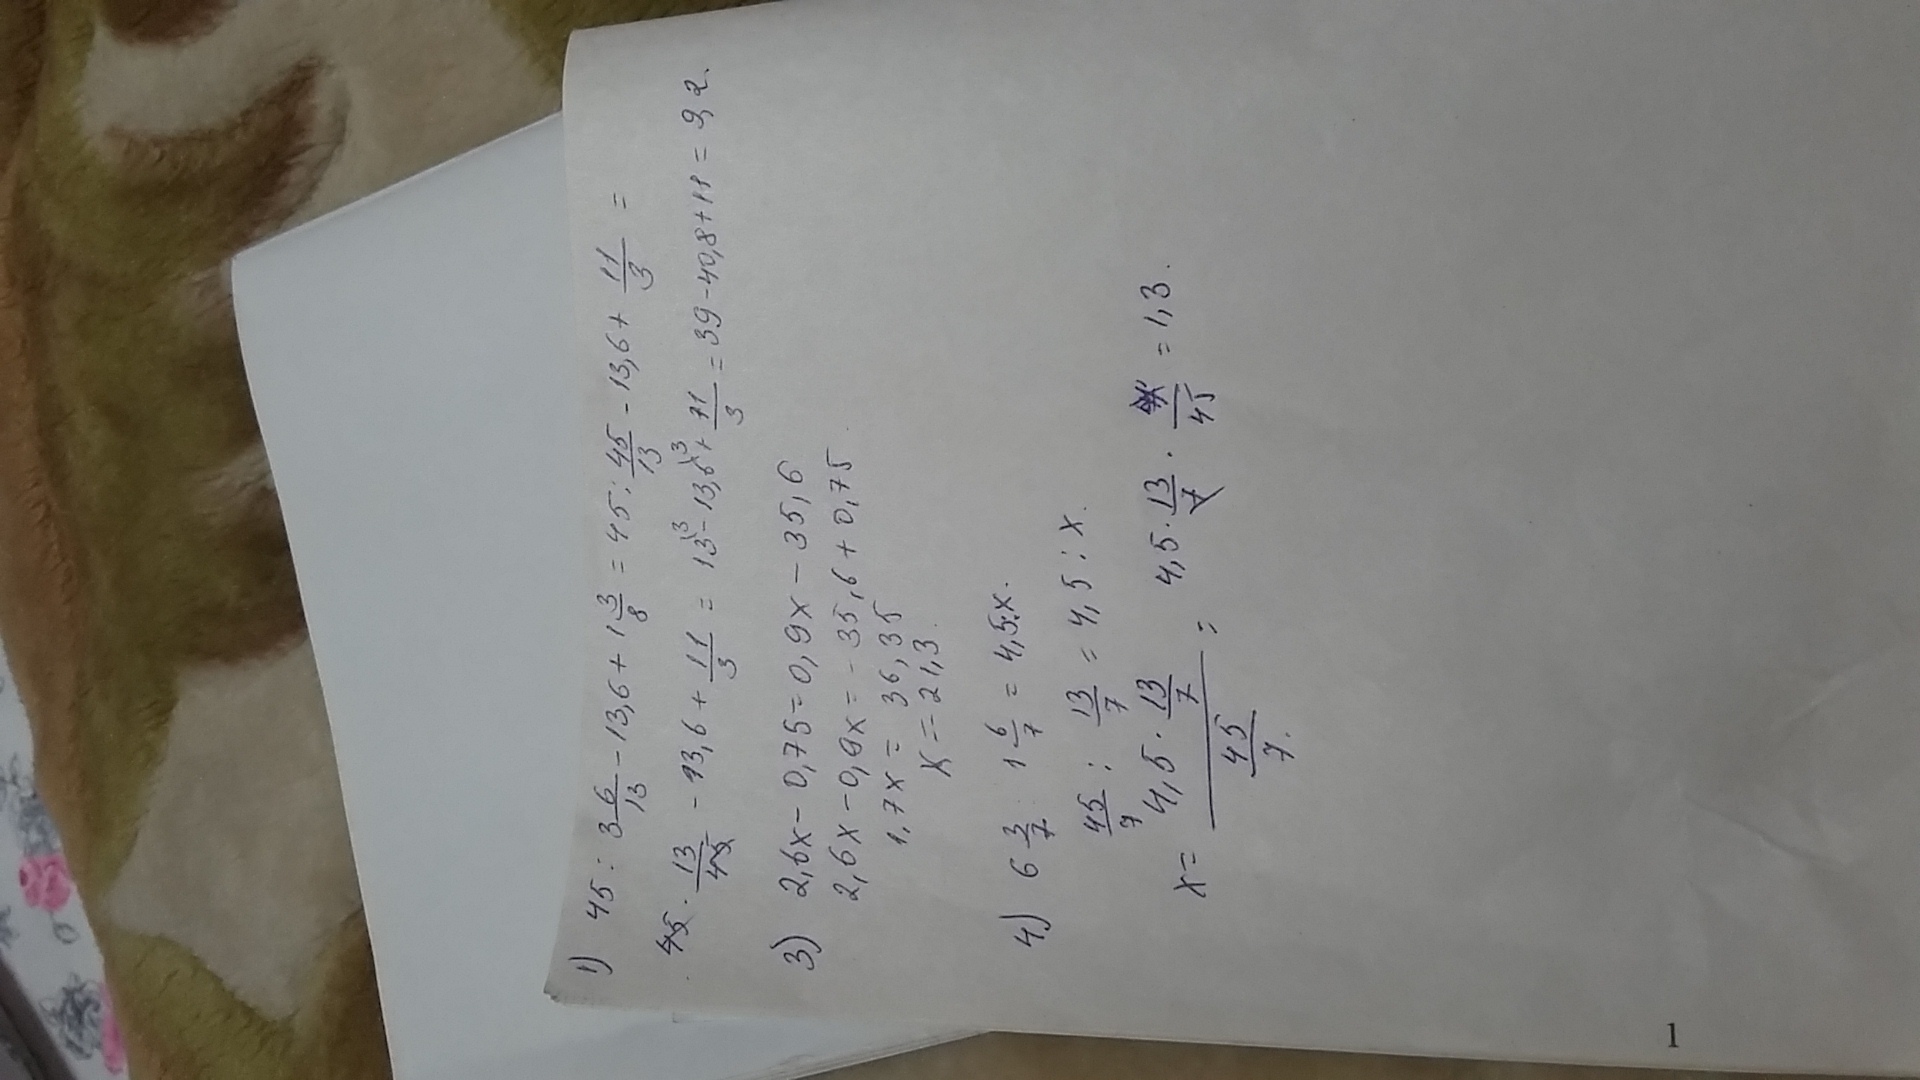 1) 45 : 3 6/13 - 13,6 + 1 3/8 = 45 : 45/13 - 13,6 + 11/3 =
45 · 13/45 - 13,6 + 11/3 = 13\3 - 13,6\3 + 11/3 = 39 - 40,8 + 11 = 9,2.
3) 2,6x - 0,75 = 0,9x - 35,6
2,6x - 0,9x = - 35,6 + 0,75.
1,7x = 36,35
x = - 21,3.
4) 6 3/7 : 1 6/7 = 4,5 : x.
45/7 : 13/7 = 4,5 : x.
x = (4,5 · 13/7)/(45/7) = 4,5 · 13/7 · /45 = 1,3.
1